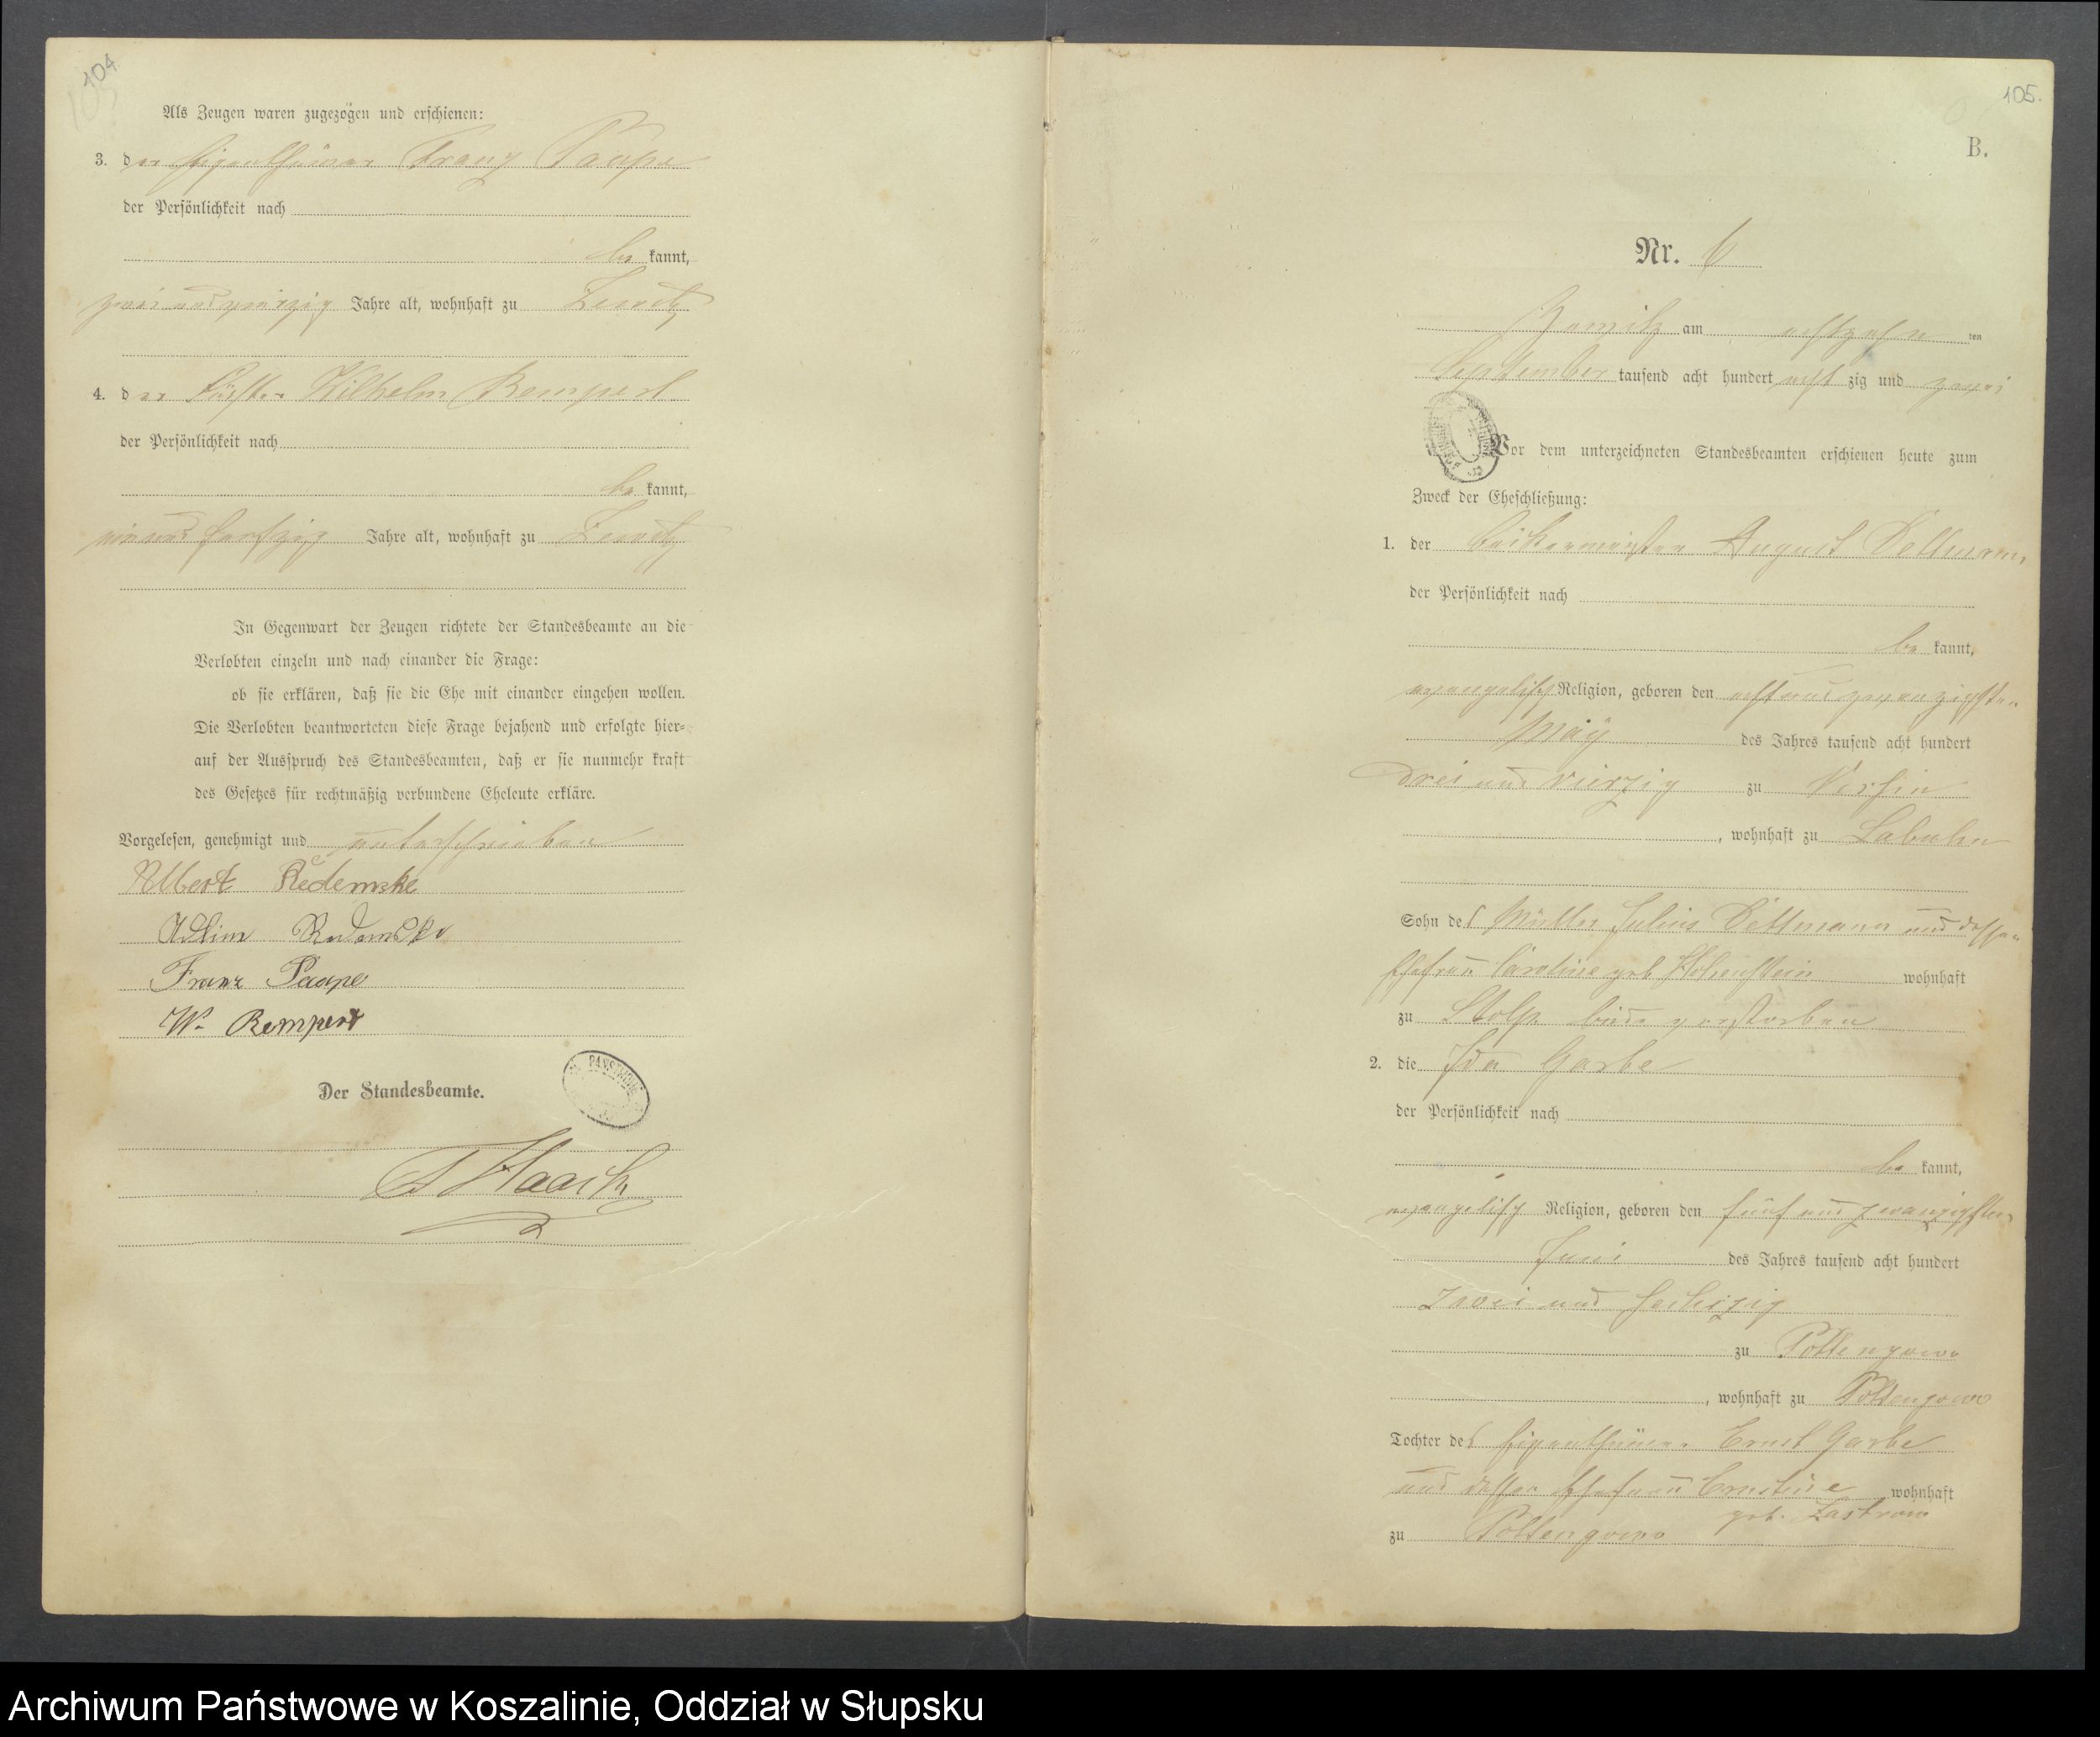 104
Als Zeugen waren zugezogen und erschienen:
3. der Eigenthümer Franz Paape
der Persönlichkeit nach
be kannt,
zwei und vierzig Jahre alt, wohnhaft zu Zewitz
4. der Förster Wilhelm Rempert
der Persönlichkeit nach
be kannt,
ein und Jahre alt, wohnhaft zu Zewitz
In Gegenwart der Zeugen richtete der Standesbeamte an die
Verlobten einzeln und nach einander die Frage:
ob sie erklären, daß sie die Ehe mit einander eingehen wollen.
Die Verlobten beantworteten diese Frage bejahend und erfolgte hier-
auf der Ausspruch des Standesbeamten, daß er sie nunmehr kraft
des Gesetzes für rechtmäßig verbundene Eheleute erkläre.
Vorgelesen, genehmigt und unterschrieben
Albert Redemske
Franz Paape
W. Rempert
Der Standesbeamte.
105.
B.
Nr. 6
am achtzehn ten
September tausend acht hundert acht zig und zwei
Vor dem unterzeichneten Standesbeamten erschienen heute zum
Zweck der Eheschließung:
1. der August Dettmann,
der Persönlichkeit nach
be kannt,
evangelisch Religion, geboren den acht und zwanzigsten
May des Jahres tausend acht hundert
drei und vierzig zu Versin
, wohnhaft zu Labuhn
Sohn des Müller Julius Dettmann und dessen
Ehefrau Caroline geb. Hohenstein wohnhaft
zu Stolp beide verstorben
2. die Ida Garbe
der Persönlichkeit nach
be kannt,
evangelisch Religion, geboren den fünf und zwanzigsten
Juni des Jahres tausend acht hundert
zwei und sechszig
zu Pottangowo
, wohnhaft zu Pottangowo
Tochter des Eigenthümer Ernst Garbe
und dessen Ehefrau Ernestine wohnhaft
geb. Zastrow
zu Pottangowo
Archiwum Państwowe w Koszalinie, Oddział w Słupsku